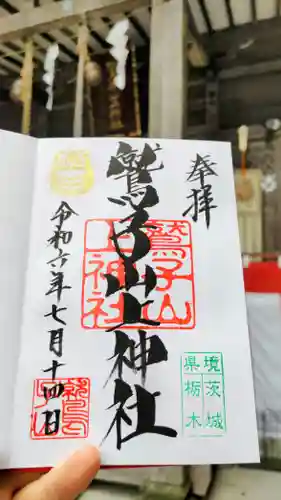 奉拝
鷲子山上神社
鷲子山
上神社
境茨城
県栃木
令和六年七月十四日